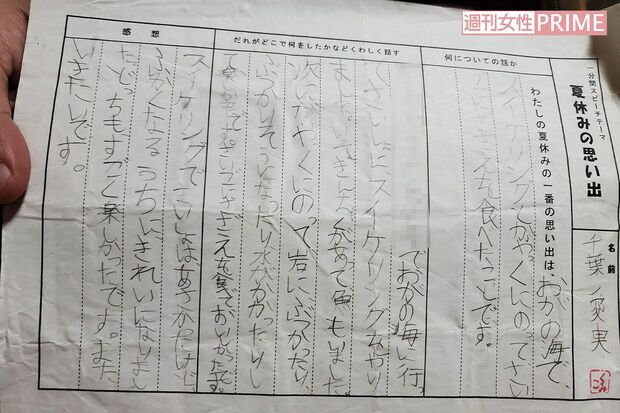 週刊女性PRIME
一分間スピーチテーマ
夏休みの思い出
名前
千葉
実
何についての話か
わたしの夏休みの一番の思い出は、おがの海で、
スイケリングとかやくにのってさい
を食べたことです。
だれがどこで何をしたかなどくわしく話す
でおがの海に行っ
さいしょにスイケリングをやり
ました。いそぎんちゃくがあって魚もいました。
次にかやくにのって岩にぶつかったり
ぶつかりそうになったり水がかかったりし
て楽しかったです。さいごにさざえを食べておいしかったです。
感想
スイケリングでさいしょはあさかったけど
ふかくなるうちにきれいになりまし
た。どっちもすごく楽しかったです。また
いきたいです。